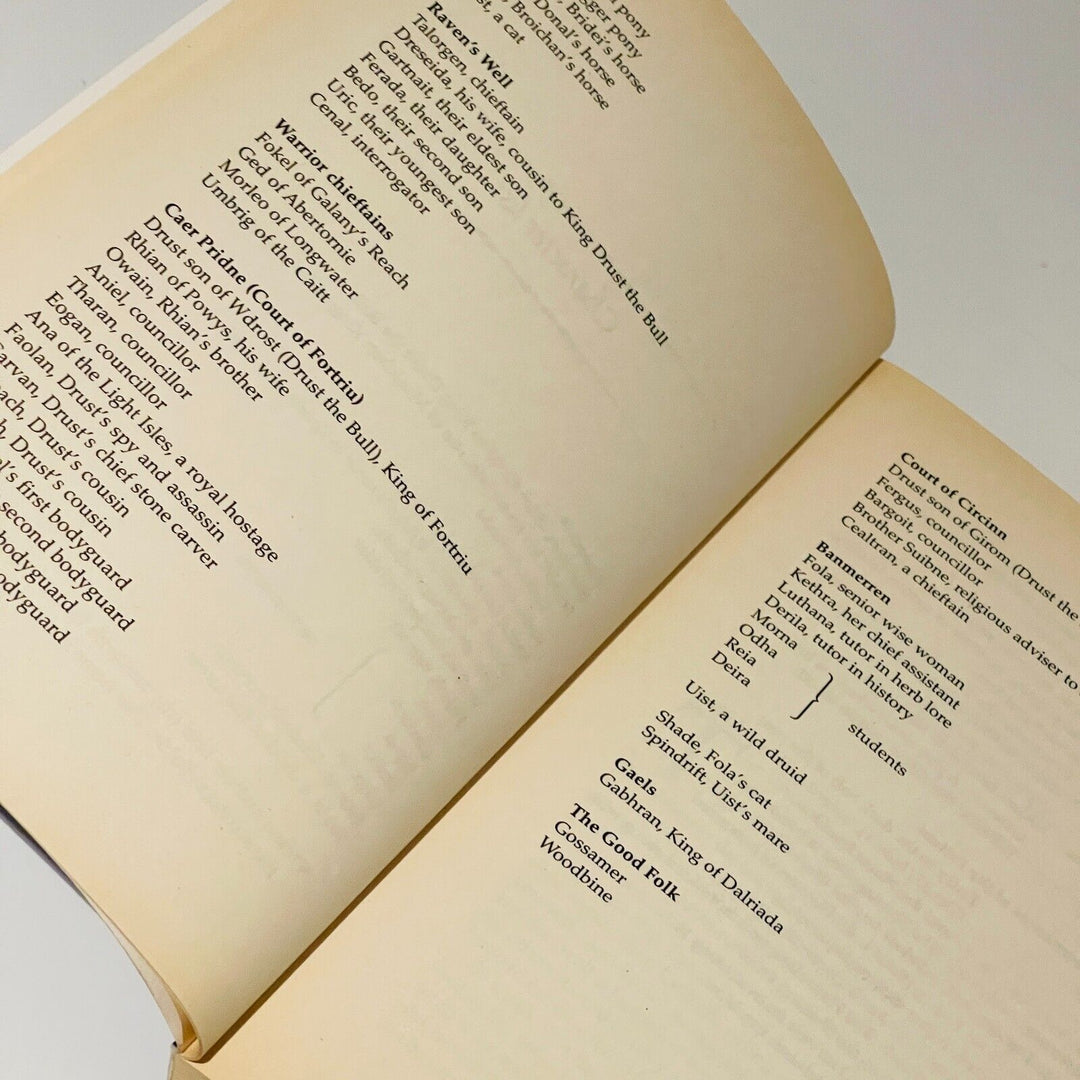 pony
sger pony
Bridei's horse
Donal's horse
Broichan's horse
a cat
Raven's Well
Talorgen, chieftain
Dreseida, his wife, cousin to King Drust the Bull
Gartnait, their eldest son
Ferada, their daughter
Bedo, their second son
Uric, their youngest son
Cenal, interrogator
Warrior chieftains
Fokel of Galany's Reach
Ged of Abertornie
Morleo of Longwater
Umbrig of the Caitt
Caer Pridne (Court of Fortriu)
Drust son of Wdrost (Drust the Bull), King of Fortriu
Rhian of Powys, his wife
Owain, Rhian's brother
Aniel, councillor
Tharan, councillor
Eogan, councillor
Ana of the Light Isles, a royal hostage
Faolan, Drust's spy and assassin
arvan, Drust's chief stone carver
ach, Drust's cousin
h, Drust's cousin
el's first bodyguard
second bodyguard
bodyguard
odyguard
Court of Circinn
Drust son of Girom (Drust the
Fergus, councillor
Bargoit, councillor
Brother Suibne, religious adviser to
Cealtran, a chieftain
Banmerren
Fola, senior wise woman
Kethra, her chief assistant
Luthana, tutor in herb lore
Derila, tutor in history
Morna
Odha
Reia
Deira
students
Uist, a wild druid
Shade, Fola's cat
Spindrift, Uist's mare
Gaels
Gabhran, King of Dalriada
The Good Folk
Gossamer
Woodbine